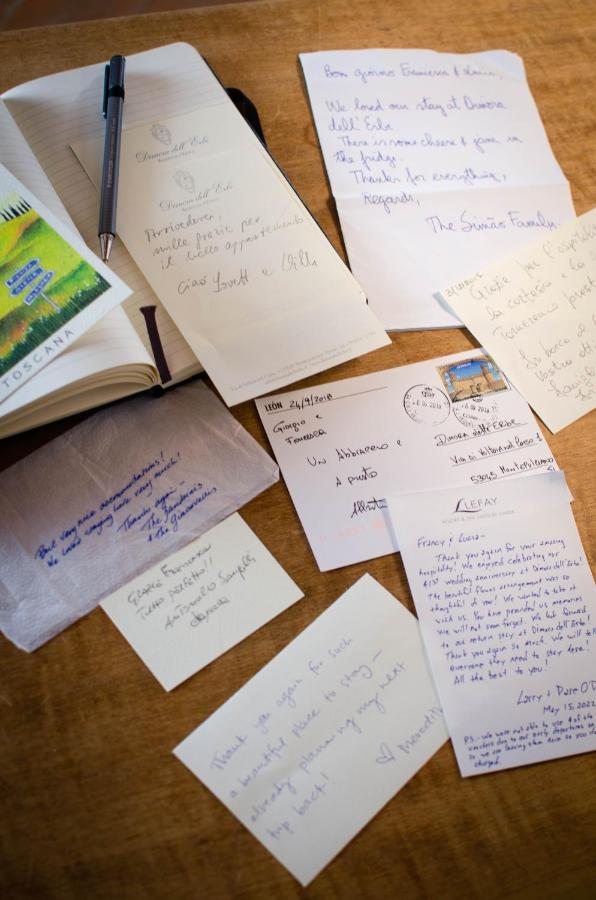 Bon giorno Francesca & Lucia,
We loved our stay at Dimora
dell' Erbe.
There is some cheese & jam in
the fridge.
Thanks for everything,
Regards,
The Simão Family
Dimora dell' Erbe
Dimora dell' Erbe
Arrivederci,
mille grazie per
il bello appartamento
Ciao
e
TOSCANA
Grazie per l'ospitalità
la cortesia e la
LEÓN 24/9/2018
Giorgio e
Francesca
Un Abbraccio e
A presto
Dimora dell' Erbe
53045 Montepulciano
But very nice accommodations!
We loved staying here very much!
Thanks again -
The
& the
Grazie Francesca
Tutto perfetto!!
Thank you again for such
a beautiful place to stay -
already planning my next
trip back!
♡ Meredith
LEFAY
RESORT & SPA LAGO DI GARDA
Francy & Lucia -
Thank you again for your amazing
hospitality! We enjoyed celebrating our
wedding anniversary at Dimora dell' Erbe!
The beautiful flower arrangement was so
thoughtful of you! We wanted to take it
with us. You have provided us memories
we will not soon forget. We look forward
to our return stay at Dimora dell' Erbe!
Thank you again so much. We will tell
everyone they need to stay here!
All the best to you!
Larry &
May 15, 2022
P.S. - We were not able to use 4 of the
vouchers due to our early departures
so we are leaving them here so you
charged.